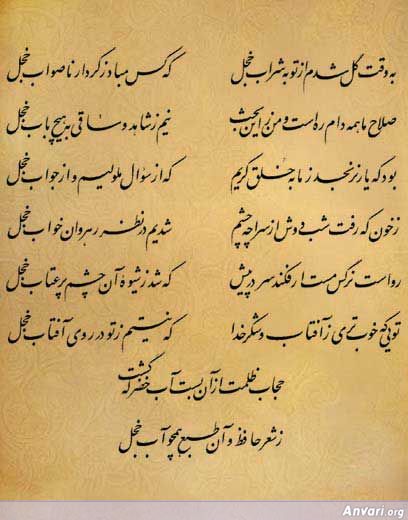 به وقت گل شدم از توبه شراب خجل که کس مباد ز کردار ناصواب خجل
صلاح ما همه دام ره است و من زین بحث نیم ز شاهد و ساقی به هیچ باب خجل
بود که یار نرنجد ز ما به خلق کریم که از سؤال ملولیم و از جواب خجل
ز خون که رفت شب دوش از سراچه چشم شدیم در نظر رهروان خواب خجل
رواست نرگس مست ار فکند سر در پیش که شد ز شیوهٔ آن چشم پرعتاب خجل
تویی که خوب تری ز آفتاب و شکر خدا که نیستم ز تو در روی آفتاب خجل
حجاب ظلمت از آن بست آب خضر که گشت
ز شعر حافظ و آن طبع همچو آب خجل
Anvari.org